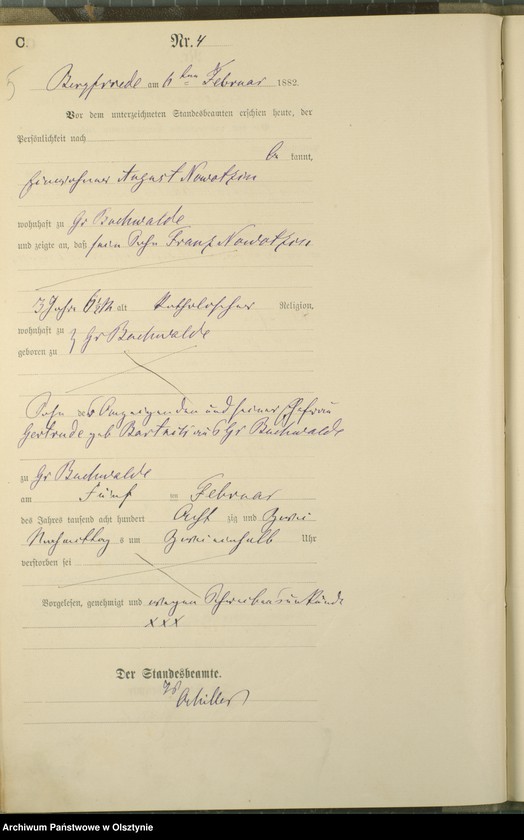 C.
Nr. 4
5
Bergfriede am 6ten Februar 1882.
Vor dem unterzeichneten Standesbeamten erschien heute, der
Persönlichkeit nach
be kannt,
Einwohner August Nowotzin
wohnhaft zu Gr Buchwalde
und zeigte an, daß sein Sohn Franz Nowotzin
3 Jahr 6 alt Katholischer Religion,
wohnhaft zu
geboren zu } Gr Buchwalde
Sohn des Anzeigenden und seiner Ehefrau
Gertrude geb aus Gr Buchwalde
zu Gr Buchwalde
am Fünf ten Februar
des Jahres tausend acht hundert Acht zig und Zwei
Nachmittag s um Zwei einhalb Uhr
verstorben sei
Vorgelesen, genehmigt und wegen Schreibensunkunde
XXX
Der Standesbeamte.